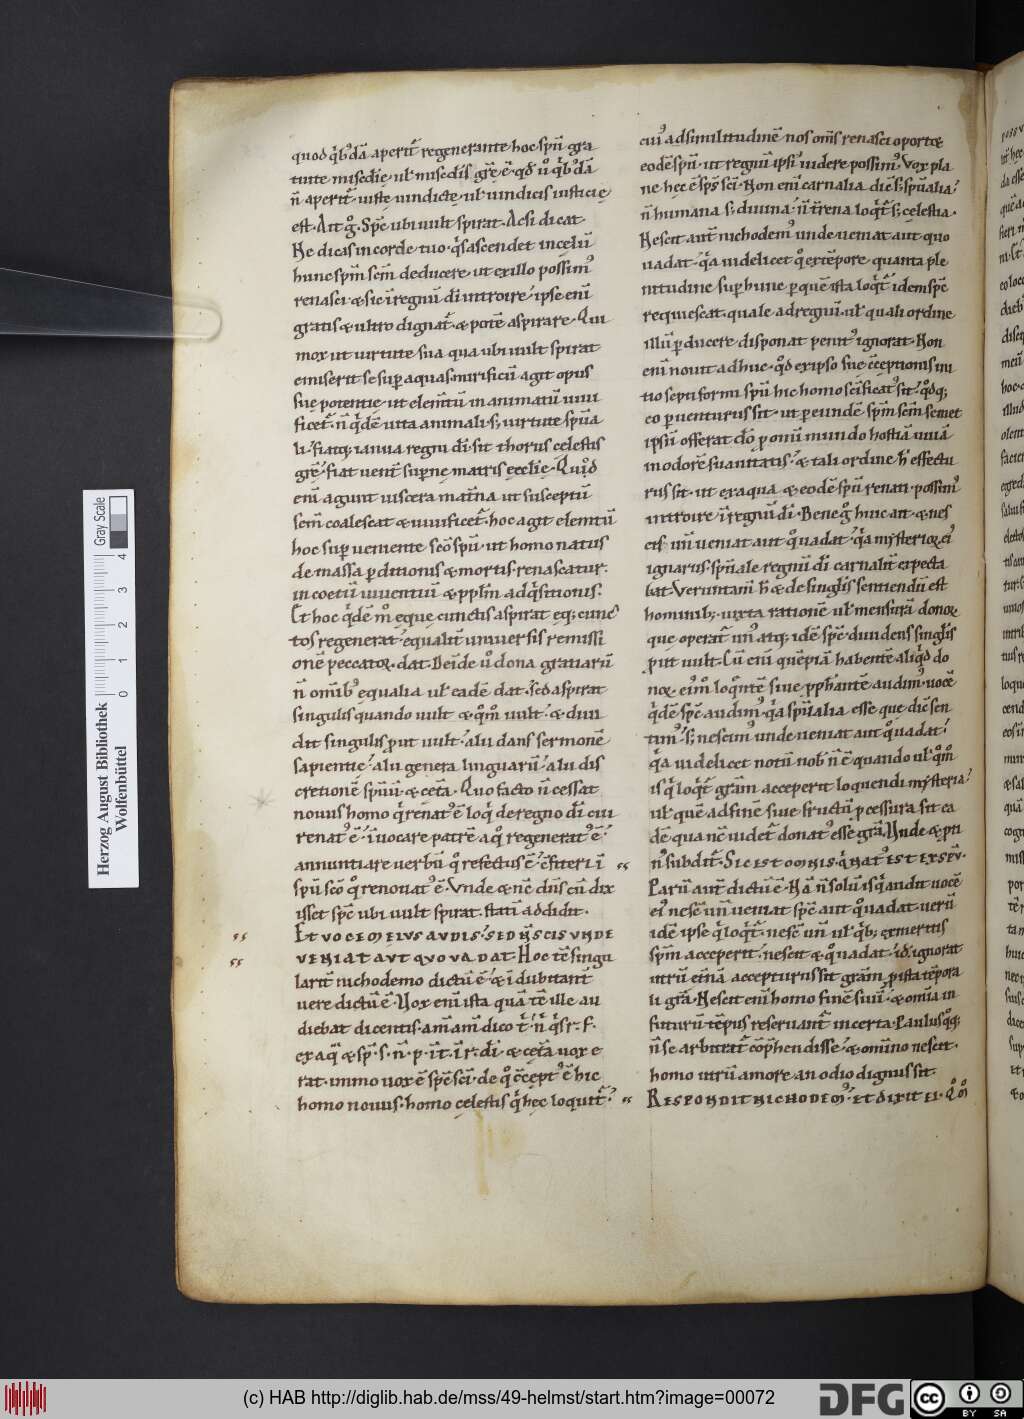 quod q̅b'dā aperit̄ regenerante hoc spū gra
tuite misedīe ul' misedīs grē ē qđ ů q̅b'dā
n̄ aperit̄ iustę uindictę ul' uindicis iusticię
est. Ait g̊. Sp̅c ubi uult spirat. Acsi dicat
Ne dicas in corde tuo. q̅s ascendet in celū
hunc spm̄ scm̄ deducere ut ex illo possim'
renasci & sic i regnū dī introire ipse enī
gratis & ultro dignat̄ & potē aspirare. Qui
mox ut uirtute sua qua ubi uult spirat
emiserit se sup aquas. mirificū agit opus
suę potentię. ut elem̄tū inanimatū uiui
ficet̄. n̄ q̅dē uita animali. s; uirtute spūa
li. fiatq; ianua regni dī. sit thorus celestis
grē. fiat uent̄ supnę matris ecclīe. Quid
enī agunt uiscera mat̄na ut susceptū
sem̄ coalescat & uiuificet̄. hoc agit elem̄tū
hoc sup ueniente scō spū. ut homo natus
de massa pditionis & mortis. renascatur.
in coetū uiuentiū & ppłm adq̅sitionis.
Et hoc q̅dē m̊ eque cunctis aspirat eq; cunc
tos regenerat. equalit̄ uniuersis remissi
onē peccatoꝝ. dat. Deīde ů dona gratiarū
n̄ omīb' equalia ul' eadē dat. sed aspirat
singulis quando uult & q̊m̊ uult. & diui
dit singulis put uult. alii dans sermonē
sapientię. alii genera linguarū. alii dis
cretionē spūū & cetā. Quo facto n̄ cessat
nouus homo q̅ renat' ē loq̅ de regno dī cui
renat' ē. īuocare patrē a q̊ regenerat' ē.
annuntiare uerbū q̊ refectus ē. cfiteri ī
spū scō q̊ renouat' ē. Vnde & nc̄ dn̄s cū dix
isset sp̅c ubi uult spirat. statī addidit.
ET VOCEM EIVS AVDIS. SED NESCIS VNDE
VENIAT AVT QVO VADAT. Hoc tē singu
larit̄ nichodemo dictū ē. & i dubitant̄
uere dictū ē. Vox enī ista quā tē ille au
diebat dicentis. am̄ am̄ dico t̄. n̄ q̅s r. f.
ex aq̅ & sp̄. s. n̄. p. īt. ī r. dī. & cetā uox e
rat. immo uox ē sp̅c scī. de q̊ ccept' ē hic
homo nouus. homo celestis q̅ hęc loquit̄.
cui' ad similitudinē nos om̄s renasci oportꝫ
eodē spū. ut regnū ipsi' uidere possim'. Vox pla
ne hęc ē sp̅c scī. Non enī carnalia dic̄ s; spūalia.
n̄ humana s; diuina. n̄ t̄rena loq̅t̄ s; celestia.
Nescit aut̄ nichodem' unde ueniat aut quo
uadat. q̅a uidelicet q̊ ex tēpore quanta ple
nitudine sup hunc p quē ista loq̅t̄ idem sp̅c
requiescat. quale ad regnū. ul' quali ordine
illū pducere disponat penit' ignorat. Non
enī nouit adhuc. qđ ex ipso suę cceptionis ini
tio septiformi spū hic homo scīficat' sit. q̊dq;
eo puenturus sit. ut p eundē spm̄ scm̄ semet
ipsū offerat dō p omī mundo hostiā uiuā
in odorē suauitatis. & tali ordine h̄ effectu
rus sit. ut ex aqua & eodē spū renati possim'
introire ī regnū dī. Bene g̊ huic ait & nes
cis un̄ ueniat aut q̊ uadat. q̅a mysterioꝝ ei'
ignarus. spūale regnū dī carnalit̄ expecta
bat. Veruntam̄ h̄ & de singlīs sentiendū est
hominib; iuxta rationē ul' mensurā donoꝝ
que operat̄ un' atq; idē sp̅c. diuidens singlīs
put uult. Cū enī quēpiā habentē aliq̅d do
noꝝ. ei'm̊ loq̊ntē siue pph̄antē audim'. uocē
q̅dē sp̅c audim'. q̅a spūalia esse que dic̄ sen
tim'. s; nescim' unde ueniat aut q̊ uadat.
q̅a uidelicet notū nob̄ n̄ ē quando ul' q̊m̊
is q̅ loq̅t̄ grām acceperit loquendi mysteria.
ul' quē ad finē siue fructū pcessura sit ea
dē qua nc̄ uidet̄ donat' esse grā. Vnde & pti
n' subdit̄. SIC EST OMNIS. Q̅ NAT' EST EX SPV.
Parū aut̄ dictū ē. Nā n̄ solū is q̅ audit uocē
ei' nesc̄ un̄ ueniat sp̅c aut q̊ uadat. uerū
idē ipse q̅ loq̅t̄. nesc̄ un̄ ul' q̅b; ex meritis
spm̄ acceperit. nescit & q̊ uadat. id. ignorat
utrū etn̄ā accepturus sit grām. p ista tēpora
li grā. Nescit enī homo finē suū. & omīa in
futurū tēpus reseruant̄ incerta. Paulus q̊q;
n̄ se arbitrat̄ cp̄hendisse. & omīno nescit.
homo utrū amore an odio dignus sit.
RESPONDIT NICHODEM'. ET DIXIT EI. Q̊M̊
Herzog August Bibliothek
Wolfenbüttel
0 1 2 3 4
Gray Scale
(c) HAB http://diglib.hab.de/mss/49-helmst/start.htm?image=00072
DFG
cc BY SA